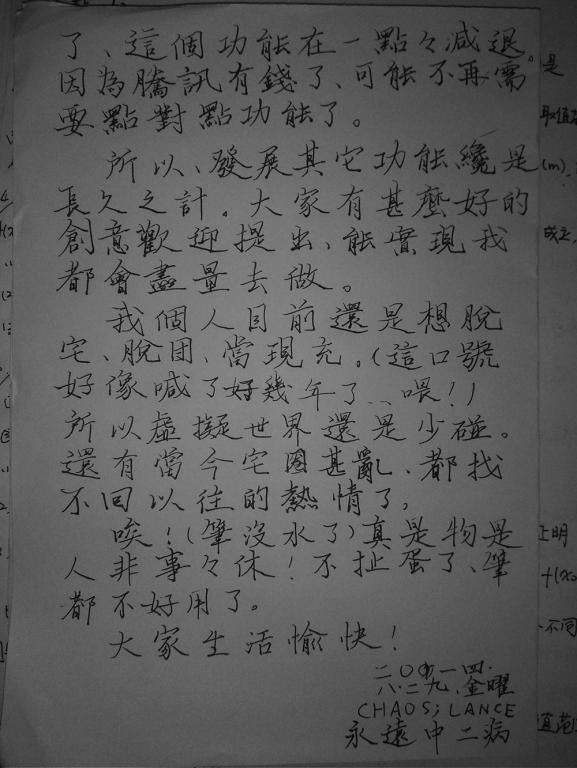 了、這個功能在一點々減退。
因為騰訊有錢了、可能不再需
要點對點功能了。
所以、發展其它功能纔是
長久之計。大家有甚麼好的
創意歡迎提出、能實現我
都會盡量去做。
我個人目前還是想脫
宅、脫团、當現充。(這口號
好像喊了好幾年了...喂！)
所以虛擬世界還是少碰。
還有當今宅圈甚亂、都找
不回以往的熱情了。
唉！(筆沒水了)真是物是
人非事々休！不扯蛋了、筆
都不好用了。
大家生活愉快！
二〇一四.
八.二九.金曜
CHAOS; LANCE
永遠中二病
是
取值
(m).
成立.
上明
f(x
不同
值范